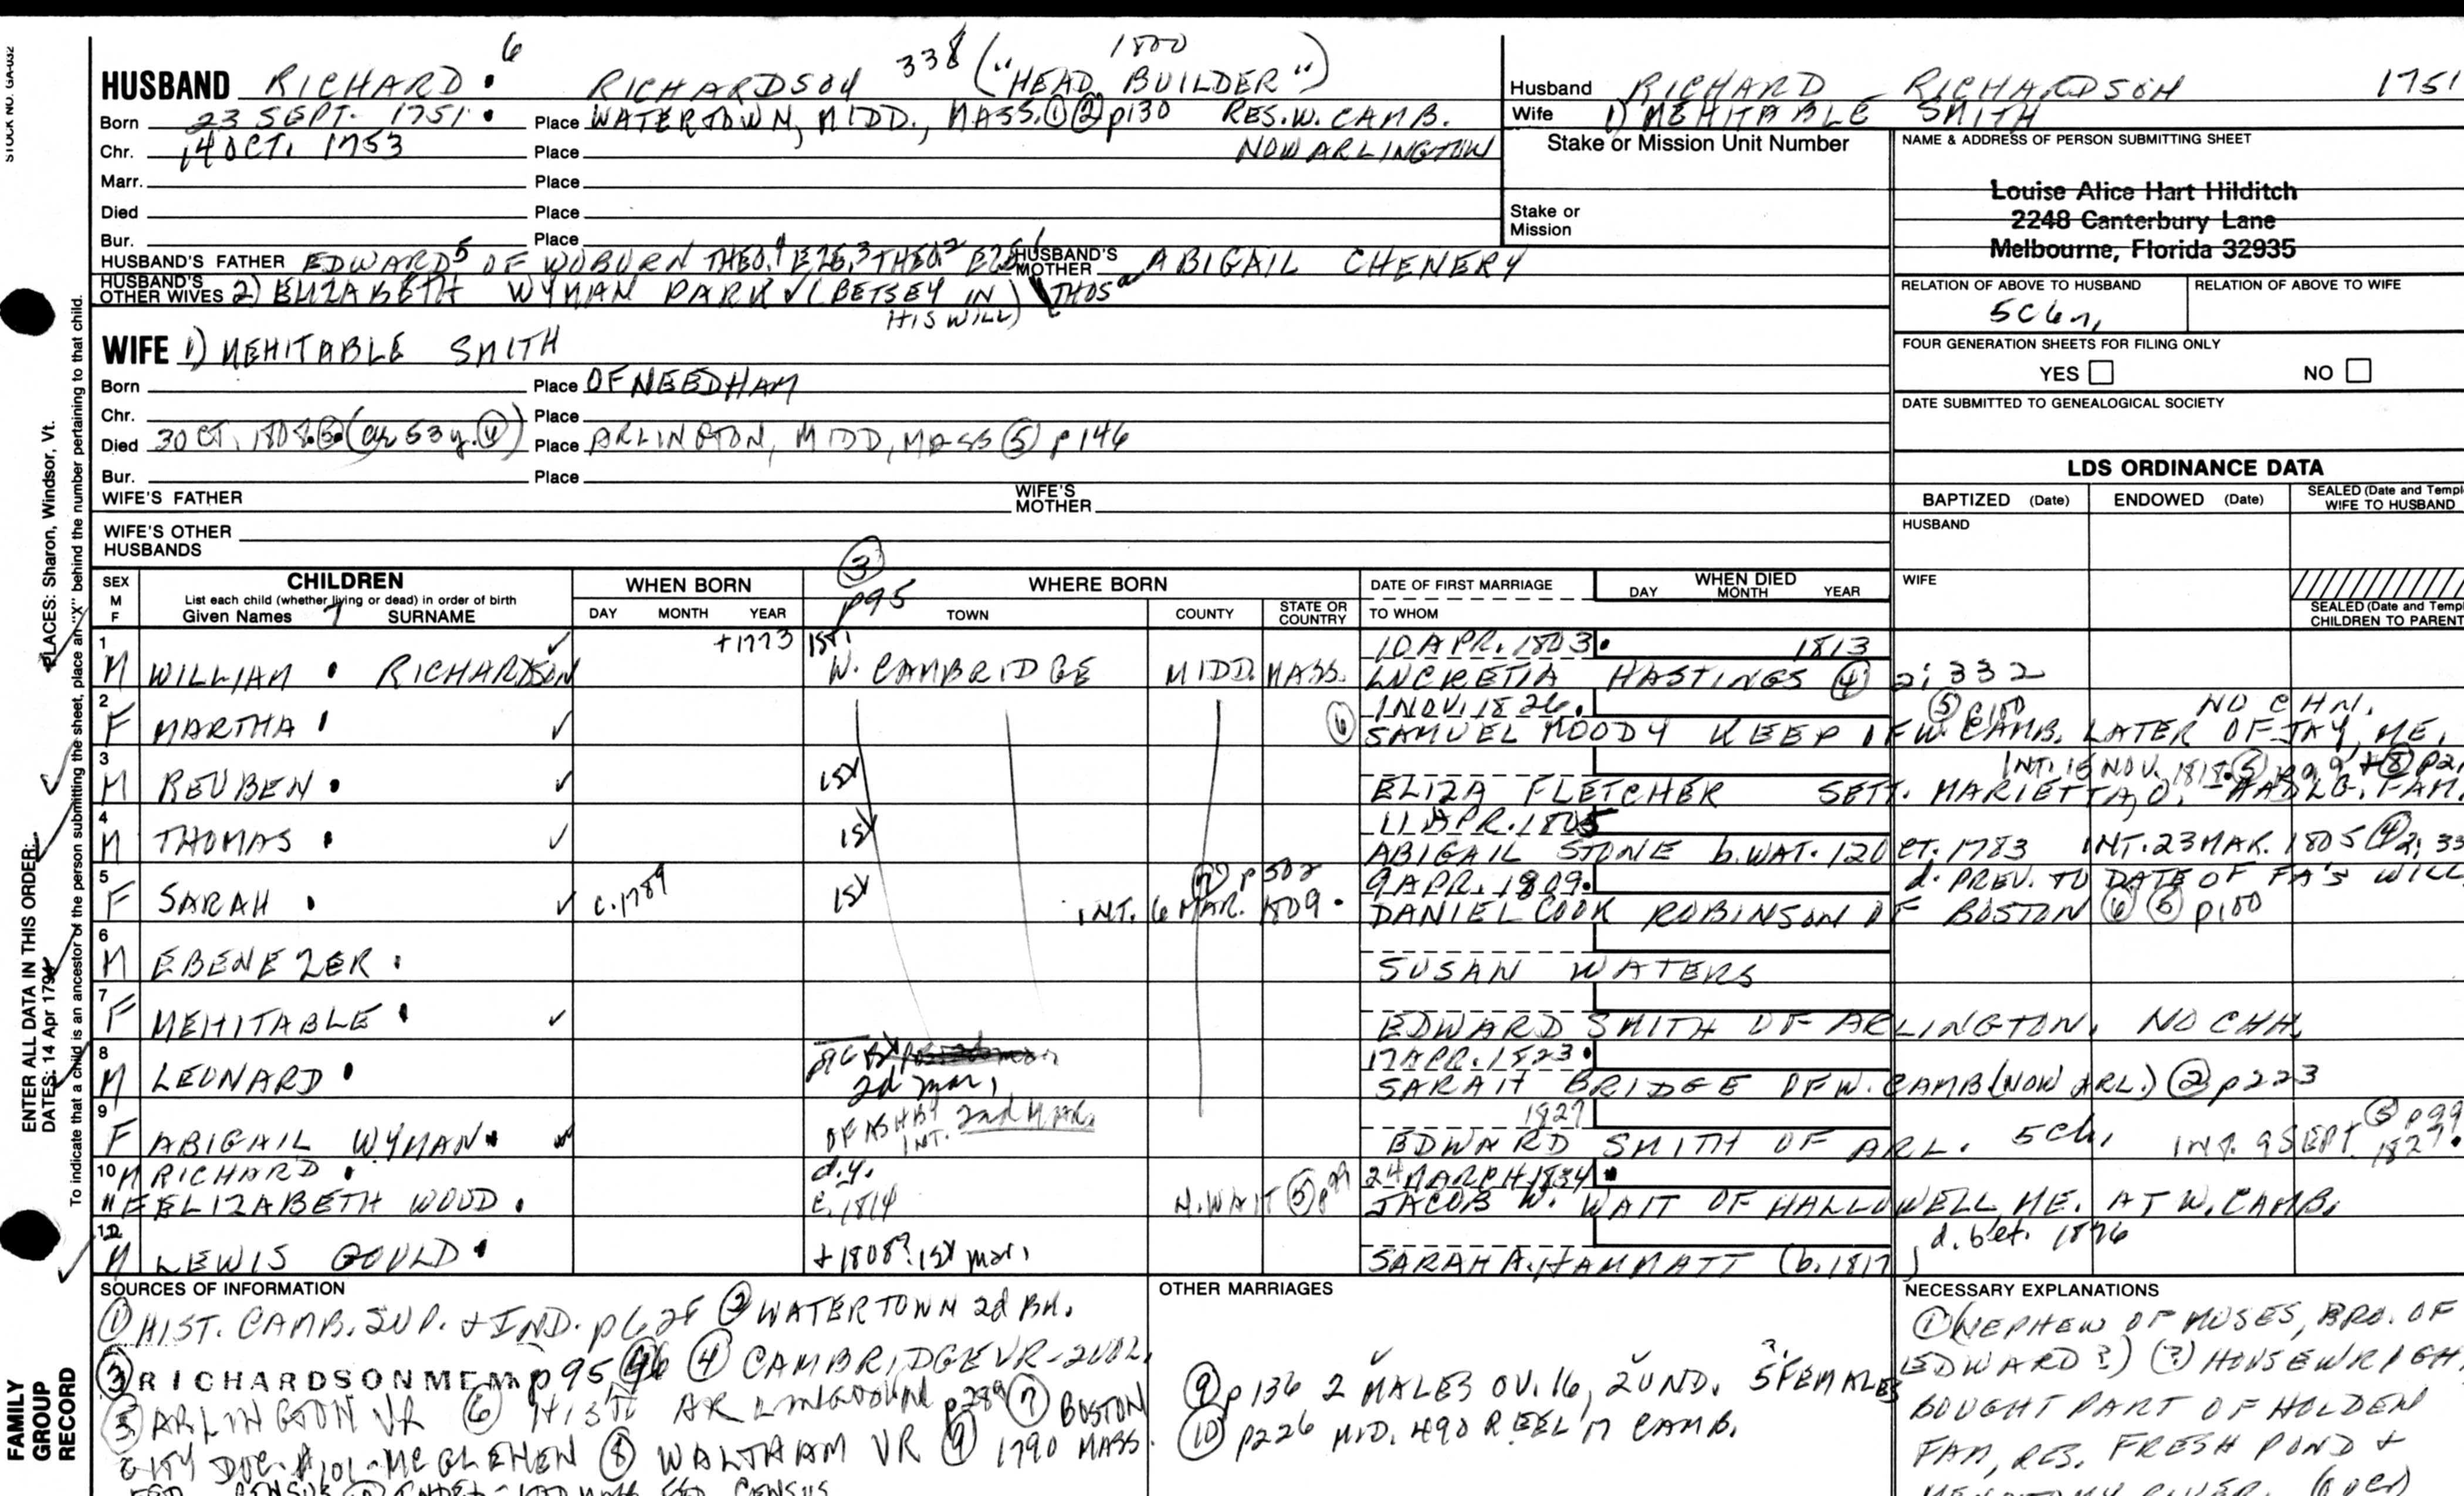 STOCK NO. GA-032
6 338 1800
HUSBAND RICHARD RICHARDSON ("HEAD BUILDER")
Born 23 SEPT. 1751 Place WATERTOWN, MIDD., MASS. ① ② p130 RES. W. CAMB.
Chr. 14 OCT. 1753 Place NOW ARLINGTON
Marr. Place
Died Place
Bur. Place
HUSBAND'S FATHER EDWARD 5 OF WOBURN THEO. 4 3 THEO 2 HUSBAND'S MOTHER ABIGAIL CHENERY
HUSBAND'S OTHER WIVES 2) ELIZABETH WYMAN PARK ✓ (BETSEY IN THOS
HIS WILL)
WIFE 1) MEHITABLE SMITH
Born Place OF NEEDHAM
Chr. Place
Died 30 CT. 1808. (ae 53 y. ④) Place ARLINGTON, MIDD, MASS ⑤ p146
Bur. Place
WIFE'S FATHER WIFE'S MOTHER
WIFE'S OTHER HUSBANDS
Husband RICHARD RICHARDSON 1751
Wife 1) MEHITABLE SMITH
Stake or Mission Unit Number
Stake or Mission
NAME & ADDRESS OF PERSON SUBMITTING SHEET
Louise Alice Hart Hilditch
2248 Canterbury Lane
Melbourne, Florida 32935
RELATION OF ABOVE TO HUSBAND RELATION OF ABOVE TO WIFE
FOUR GENERATION SHEETS FOR FILING ONLY
YES NO
DATE SUBMITTED TO GENEALOGICAL SOCIETY
LDS ORDINANCE DATA
BAPTIZED (Date) ENDOWED (Date) SEALED (Date and Templ
WIFE TO HUSBAND
HUSBAND
WIFE
SEALED (Date and Templ
CHILDREN TO PARENT
③ p95
SEX M F
CHILDREN
List each child (whether living or dead) in order of birth
Given Names 7 SURNAME
WHEN BORN
DAY MONTH YEAR
WHERE BORN
TOWN COUNTY STATE OR COUNTRY
DATE OF FIRST MARRIAGE
TO WHOM
WHEN DIED
DAY MONTH YEAR
1 ✓ +1773 1st 10 APR. 1803. 1813
M WILLIAM RICHARDSON W. CAMBRIDGE MIDD. MASS. LUCRETIA HASTINGS ④ 2; 332
2 1 NOV. 1826. ⑤ p100 NO CHN.
F MARTHA ✓ ⑥ SAMUEL MOODY KEEP OF W. CAMB. LATER OF JAY, ME.
3 INT. 15 NOV. 1818. ⑤ p99 + ⑧ p2
M REUBEN ✓ 1st ELIZA FLETCHER SETT. MARIETTA, O. - HAD LG. FAM.
4 11 APR. 1805
M THOMAS ✓ 1st ABIGAIL STONE b. WAT. 12 OCT. 1783 INT. 23 MAR. 1805 ④ 2; 33
5 ⑦ p502 9 APR. 1809. d. PREV. TO DATE OF FA'S WILL
F SARAH ✓ c. 1789 1st INT. 6 MAR. 1809. DANIEL COOK ROBINSON OF BOSTON ⑥ ⑤ p100
6
M EBENEZER SUSAN WATERS
7
F MEHITABLE ✓ EDWARD SMITH OF ARLINGTON. NO CHN.
8 17 APR. 1823.
M LEONARD 2d mar. SARAH BRIDGE OF W. CAMB (NOW ARL.) ② p223
9 OF ASHBY 2nd MAR. 1827 ⑤ p99
F ABIGAIL WYMAN INT. EDWARD SMITH OF ARL. 5 ch. INT. 9 SEPT. 1827.
10 M RICHARD d.y. 24 MARCH 1834
11 F ELIZABETH WOOD c. 1814 N. WAIT ⑤ p99 JACOB W. WAIT OF HALLOWELL, ME. AT W. CAMB.
12 d. bet. 1876
M LEWIS GOULD +1808? 1st mar. SARAH A. HAMMATT (b. 1817)
SOURCES OF INFORMATION
① HIST. CAMB. SUP. & IND. p62F ② WATERTOWN 2d BK.
③ RICHARDSON MEM p95 96 ④ CAMBRIDGE VR - 2 VOL.
⑤ ARLINGTON VR ⑥ HIST ARLINGTON p289 ⑦ BOSTON
CITY DOC. #101 - MCGLENEN ⑧ WALTHAM VR ⑨ 1790 MASS.
FED CENSUS FED CENSUS
OTHER MARRIAGES
⑨ p136 2 MALES OV. 16, 2 UND. 5 FEMALES
⑩ p226 M.D. 490 REEL 17 CAMB.
NECESSARY EXPLANATIONS
① (NEPHEW OF MOSES, BRO. OF
EDWARD?) (?) HOUSEWRIGH
BOUGHT PART OF HOLDEN
FAM, RES. FRESH POND &
MENOTOMY RIVER. (over)
PLACES: Sharon, Windsor, Vt.
ENTER ALL DATA IN THIS ORDER:
DATES: 14 Apr 1794
To indicate that a child is an ancestor of the person submitting the sheet, place an "X" behind the number pertaining to that child.
FAMILY
GROUP
RECORD